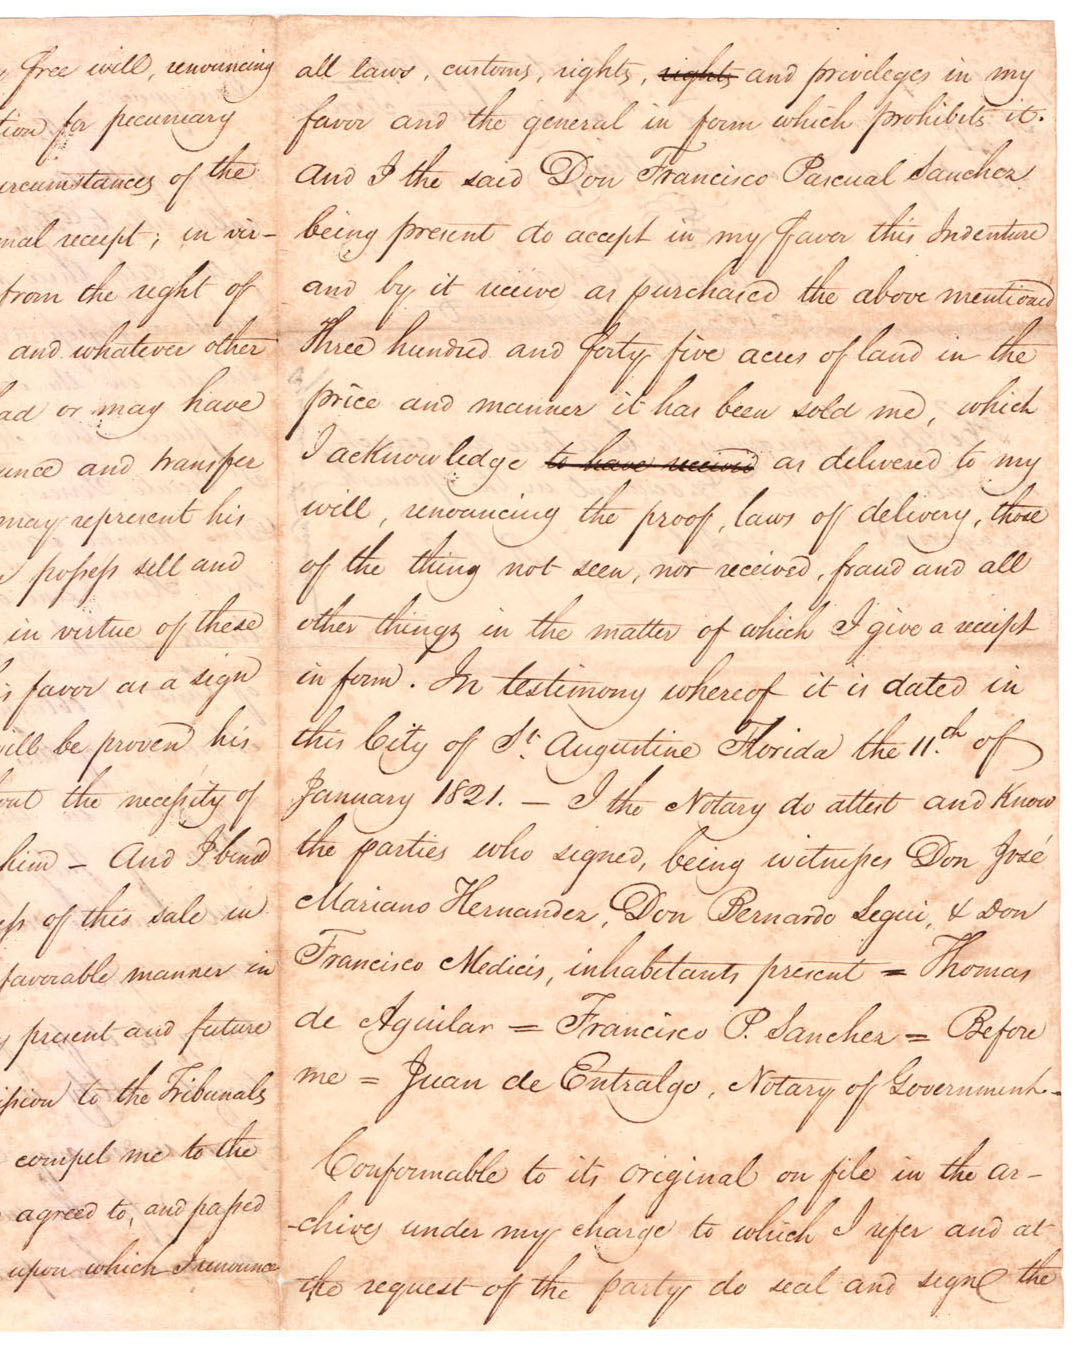 free will, renouncing
tion for pecuniary
ircumstances of the
nal receipt; in vir-
from the right of
and whatever other
ad or may have
unce and transfer
may represent his
possess sell and
in virtue of these
s favor as a sign
will be proven his
out the necessity of
him - And I bind
ess of this sale in
favorable manner in
present and future
ission to the Tribunals
compel me to the
agreed to, and passed
upon which I renounce
all laws, customs, rights, rights and privileges in my
favor and the general in form which prohibits it.
And I the said Don Francisco Pascual Sanchez
being present do accept in my favor this Indenture
and by it receive as purchased the above mentioned
Three hundred and forty five acres of land in the
price and manner it has been sold me, which
I acknowledge to have received as delivered to my
will, renouncing the proof, laws of delivery, those
of the thing not seen, nor received, fraud and all
other things in the matter of which I give a receipt
in form. In testimony whereof it is dated in
this City of St. Augustine Florida the 11.th of
January 1821. - I the Notary do attest and know
the parties who signed, being witnesses Don José
Mariano Hernandez, Don Bernardo Segui, & Don
Francisco Medicis, inhabitants present = Thomas
de Aguilar = Francisco P. Sanchez = Before
me = Juan de Entralgo, Notary of Government-
Conformable to its original on file in the ar-
-chives under my charge to which I refer and at
the request of the party do seal and sign the